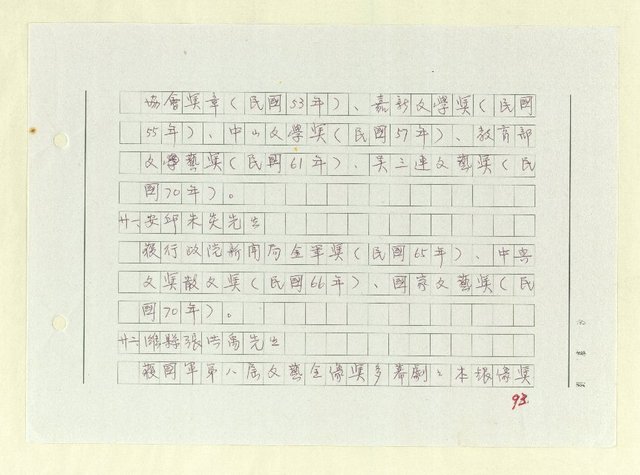 協會獎章（民國53年）、嘉新文學獎（民國
55年）、中山文學獎（民國57年）、教育部
文學藝獎（民國61年）、吳三連文藝獎（民
國70年）。
廿一、安邱朱炎先生
獲行政院新聞局金筆獎（民國65年）、中興
文獎散文獎（民國66年）、國家文藝獎（民
國70年）。
廿二、濰縣張浩禹先生
獲國軍第八屆文藝金像獎多幕劇、本銀像獎
93